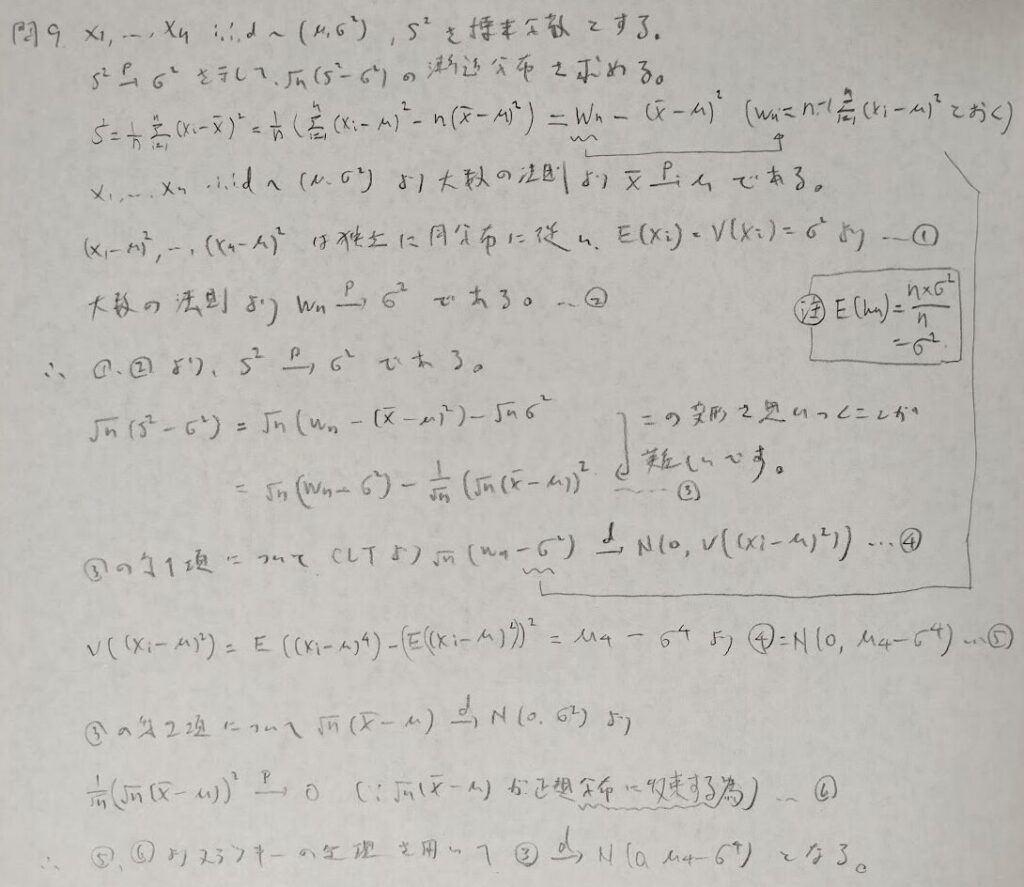 問9 X₁, …, Xn i.i.d ~ (μ, σ²), S² を標本分散とする。
S² →ᴾ σ² を示して、√n(S²-σ²) の漸近分布を求める。
S² = 1/n Σᵢ₌₁ⁿ (Xi-X̄)² = 1/n (Σᵢ₌₁ⁿ (Xi-μ)² - n(X̄-μ)²) = Wn - (X̄-μ)² (Wn = n⁻¹ Σᵢ₌₁ⁿ (Xi-μ)² とおく)
X₁, …, Xn i.i.d ~ (μ, σ²) より大数の法則より X̄ →ᴾ μ である。
(X₁-μ)², …, (Xn-μ)² は独立に同分布に従い、E(Xi) = V(Xi) = σ² より …①
大数の法則より Wn →ᴾ σ² である。…②
注 E(Wn) = n×σ²/n
= σ²
∴ ①、②より、S² →ᴾ σ² である。
√n(S²-σ²) = √n(Wn - (X̄-μ)²) - √nσ²
= √n(Wn-σ²) - 1/√n (√n(X̄-μ))² …③
この変形を思いつくことが
難しいです。
③の第1項について CLTより √n(Wn-σ²) →ᵈ N(0, V((Xi-μ)²)) …④
V((Xi-μ)²) = E((Xi-μ)⁴) - (E((Xi-μ)²))² = μ₄ - σ⁴ より ④=N(0, μ₄-σ⁴) …⑤
③の第2項について √n(X̄-μ) →ᵈ N(0, σ²) より
1/√n (√n(X̄-μ))² →ᴾ 0 (∵ √n(X̄-μ) が正規分布に収束する為) …⑥
∴ ⑤、⑥よりスラツキーの定理を用いて ③ →ᵈ N(0, μ₄-σ⁴) となる。